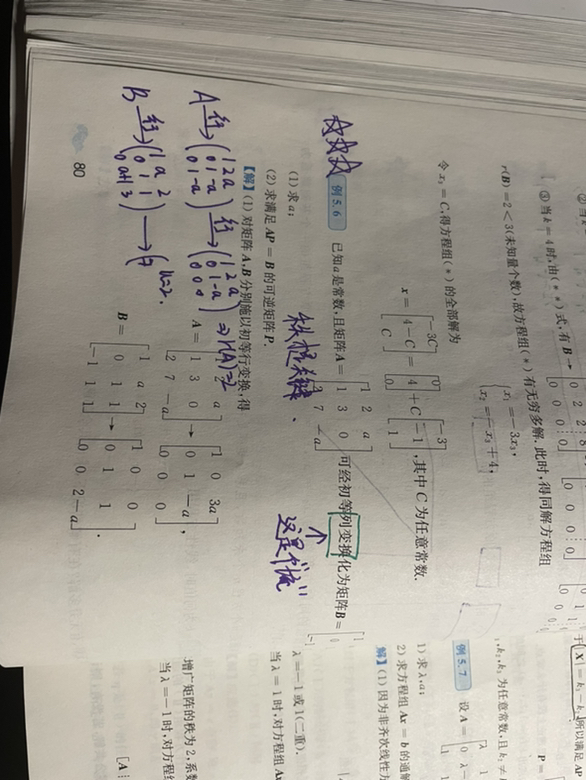 ③当k=4时,由(**)式,有B→
r(B)=2<3(未知量个数),故方程组(*)有无穷多解.此时,得同解方程组
x₁=-3x₃,
x₂=-x₃+4,
令x₃=C,得方程组(*)的全部解为
x=[-3C 4-C C]=[0 4 0]+C[-3 -1 1],其中C为任意常数.
☆☆☆ 例5.6 已知a是常数,且矩阵A=[1 2 a; 1 3 0; 2 7 -a]可经初等列变换化为矩阵B=
(1)求a;
(2)求满足AP=B的可逆矩阵P.
这是个"坑"
【解】(1)对矩阵A,B分别施以初等行变换,得
A=[1 2 a; 1 3 0; 2 7 -a]→[1 0 3a; 0 1 -a; 0 0 0],
B=[1 a 2; 0 1 1; -1 1 1]→[1 0 0; 0 1 1; 0 0 2-a].
A 行→(1 2 a; 0 1 -a; 0 1 -a) 行→(1 2 a; 0 1 -a; 0 0 0) ⇒r(A)=2
B 行→(1 a 2; 0 1 1; 0 a+1 3)→
a=2.
80
例5.7 设A=
1)求λ,a;
2)求方程组Ax=b的通解
解】(1)因为非齐次线性方
λ=-1或1(二重).
当λ=1时,对方程组
增广矩阵的秩为2,系数
当λ=-1时,对方程组